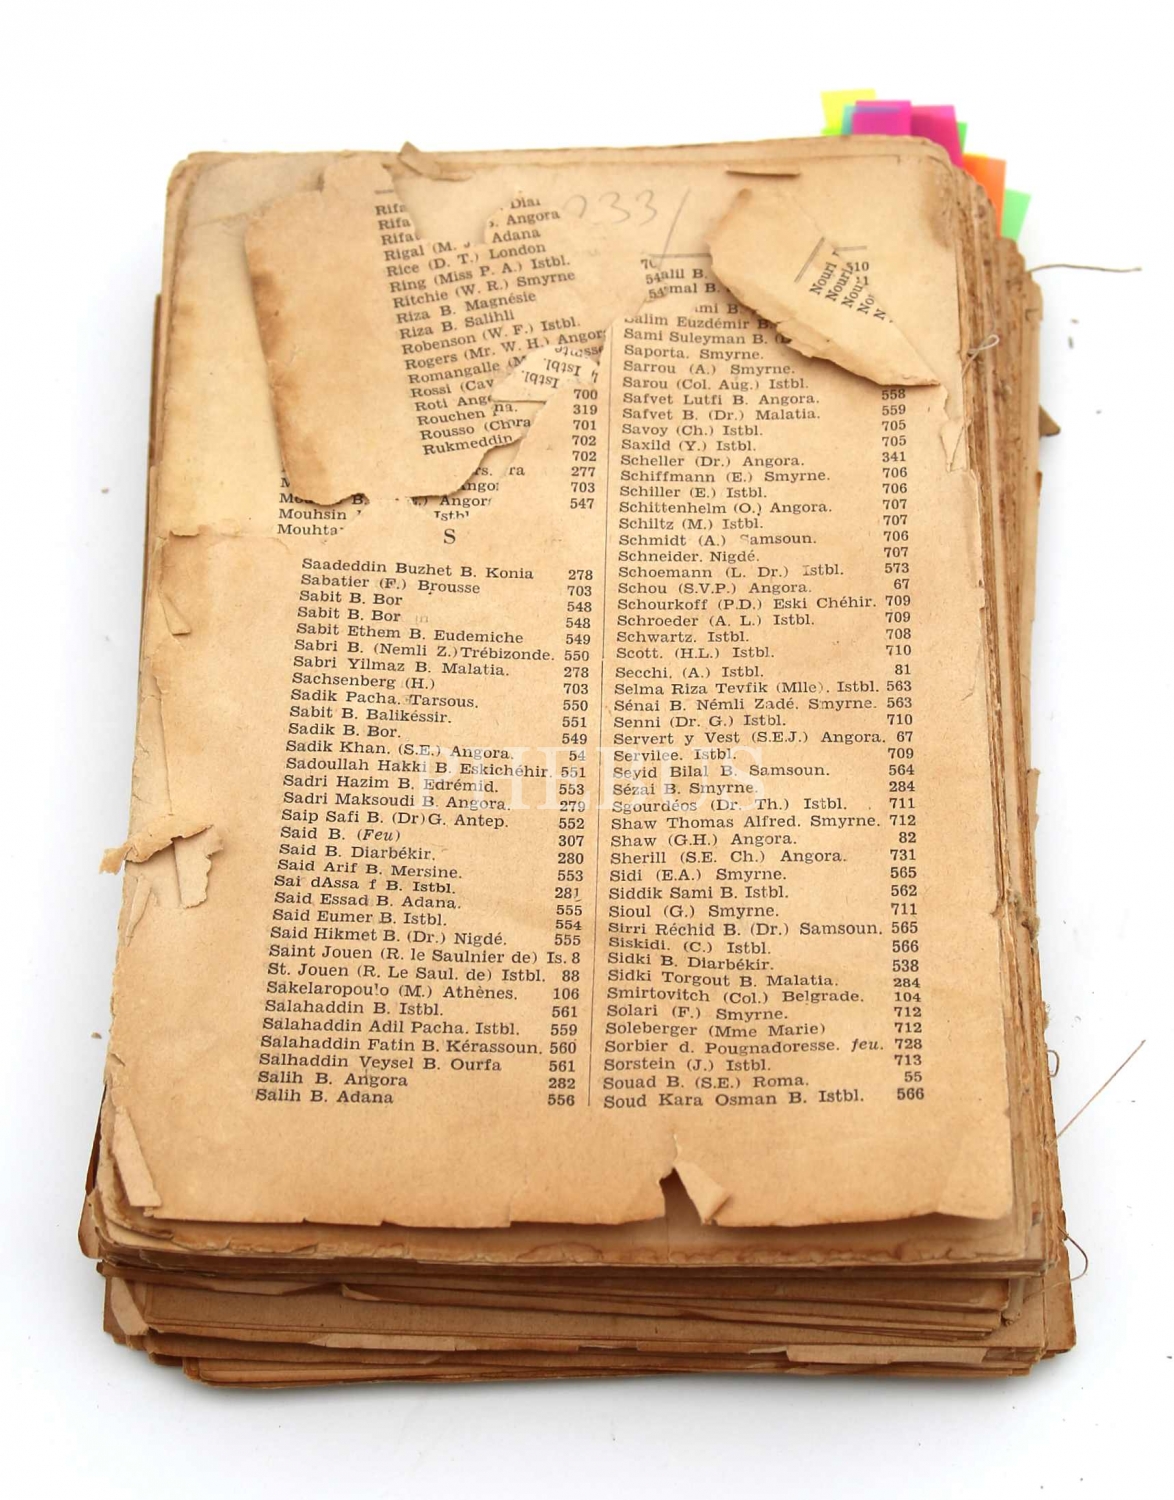 233
Rifa Dial
Rifa Angora
Rifat Adana
Rigal (M. Adana
Rice (D. T.) London
Ring (Miss P. A.) Istbl.
Ritchie (W. R.) Smyrne
Riza B. Magnésie
Riza B. Salihli
Robenson (W. F.) Istbl.
Rogers (Mr. W. H.) Angor
Romangalle (M
Rossi (Cav
Roti Ange
Rouchen
Rousso (Ch
Rukmeddin
700
319
701
702
702
277
703
547
Mouhsin Istbl
Mouhta
S
Saadeddin Buzhet B. Konia 278
Sabatier (F.) Brousse 703
Sabit B. Bor 548
Sabit B. Bor 548
Sabit Ethem B. Eudemiche 549
Sabri B. (Nemli Z.)Trébizonde. 550
Sabri Yilmaz B. Malatia. 278
Sachsenberg (H.) 703
Sadik Pacha. Tarsous. 550
Sabit B. Balikéssir. 551
Sadik B. Bor. 549
Sadik Khan. (S.E.) Angora. 54
Sadoullah Hakki B. Eskichéhir. 551
Sadri Hazim B. Edrémid. 553
Sadri Maksoudi B. Angora. 279
Saip Safi B. (Dr)G. Antep. 552
Said B. (Feu) 307
Said B. Diarbékir. 280
Said Arif B. Mersine. 553
Sai dAssa f B. Istbl. 281
Said Essad B. Adana. 555
Said Eumer B. Istbl. 554
Said Hikmet B. (Dr.) Nigdé. 555
Saint Jouen (R. le Saulnier de) Is. 8
St. Jouen (R. Le Saul. de) Istbl. 88
Sakelaropoulo (M.) Athènes. 106
Salahaddin B. Istbl. 561
Salahaddin Adil Pacha. Istbl. 559
Salahaddin Fatin B. Kérassoun. 560
Salhaddin Veysel B. Ourfa 561
Salih B. Angora 282
Salih B. Adana 556
Nouri 510
Nouri
Nou
No
N
alil B.
mal B.
mi B
alim Euzdémir B.
Sami Suleyman B.
Saporta. Smyrne.
Sarrou (A.) Smyrne.
Sarou (Col. Aug.) Istbl.
Safvet Lutfi B. Angora. 558
Safvet B. (Dr.) Malatia. 559
Savoy (Ch.) Istbl. 705
Saxild (Y.) Istbl. 705
Scheller (Dr.) Angora. 341
Schiffmann (E.) Smyrne. 706
Schiller (E.) Istbl. 706
Schittenhelm (O.) Angora. 707
Schiltz (M.) Istbl. 707
Schmidt (A.) Samsoun. 706
Schneider. Nigdé. 707
Schoemann (L. Dr.) Istbl. 573
Schou (S.V.P.) Angora. 67
Schourkoff (P.D.) Eski Chéhir. 709
Schroeder (A. L.) Istbl. 709
Schwartz. Istbl. 708
Scott. (H.L.) Istbl. 710
Secchi. (A.) Istbl. 81
Selma Riza Tevfik (Mlle). Istbl. 563
Sénai B. Némli Zadé. Smyrne. 563
Senni (Dr. G.) Istbl. 710
Servert y Vest (S.E.J.) Angora. 67
Servilee. Istbl. 709
Seyid Bilal B. Samsoun. 564
Sézai B. Smyrne. 284
Sgourdéos (Dr. Th.) Istbl. 711
Shaw Thomas Alfred. Smyrne. 712
Shaw (G.H.) Angora. 82
Sherill (S.E. Ch.) Angora. 731
Sidi (E.A.) Smyrne. 565
Siddik Sami B. Istbl. 562
Sioul (G.) Smyrne. 711
Sirri Réchid B. (Dr.) Samsoun. 565
Siskidi. (C.) Istbl. 566
Sidki B. Diarbékir. 538
Sidki Torgout B. Malatia. 284
Smirtovitch (Col.) Belgrade. 104
Solari (F.) Smyrne. 712
Soleberger (Mme Marie) 712
Sorbier d. Pougnadoresse. feu. 728
Sorstein (J.) Istbl. 713
Souad B. (S.E.) Roma. 55
Soud Kara Osman B. Istbl. 566
PHEBUS